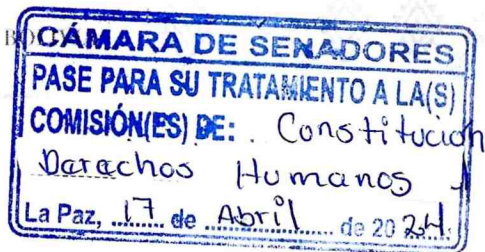 CÁMARA DE SENADORES
PASE PARA SU TRATAMIENTO A LA(S)
COMISIÓN(ES) DE: . Constitución
Darachos Humanos
La Paz, ....17 de Abril........ de 20 24.